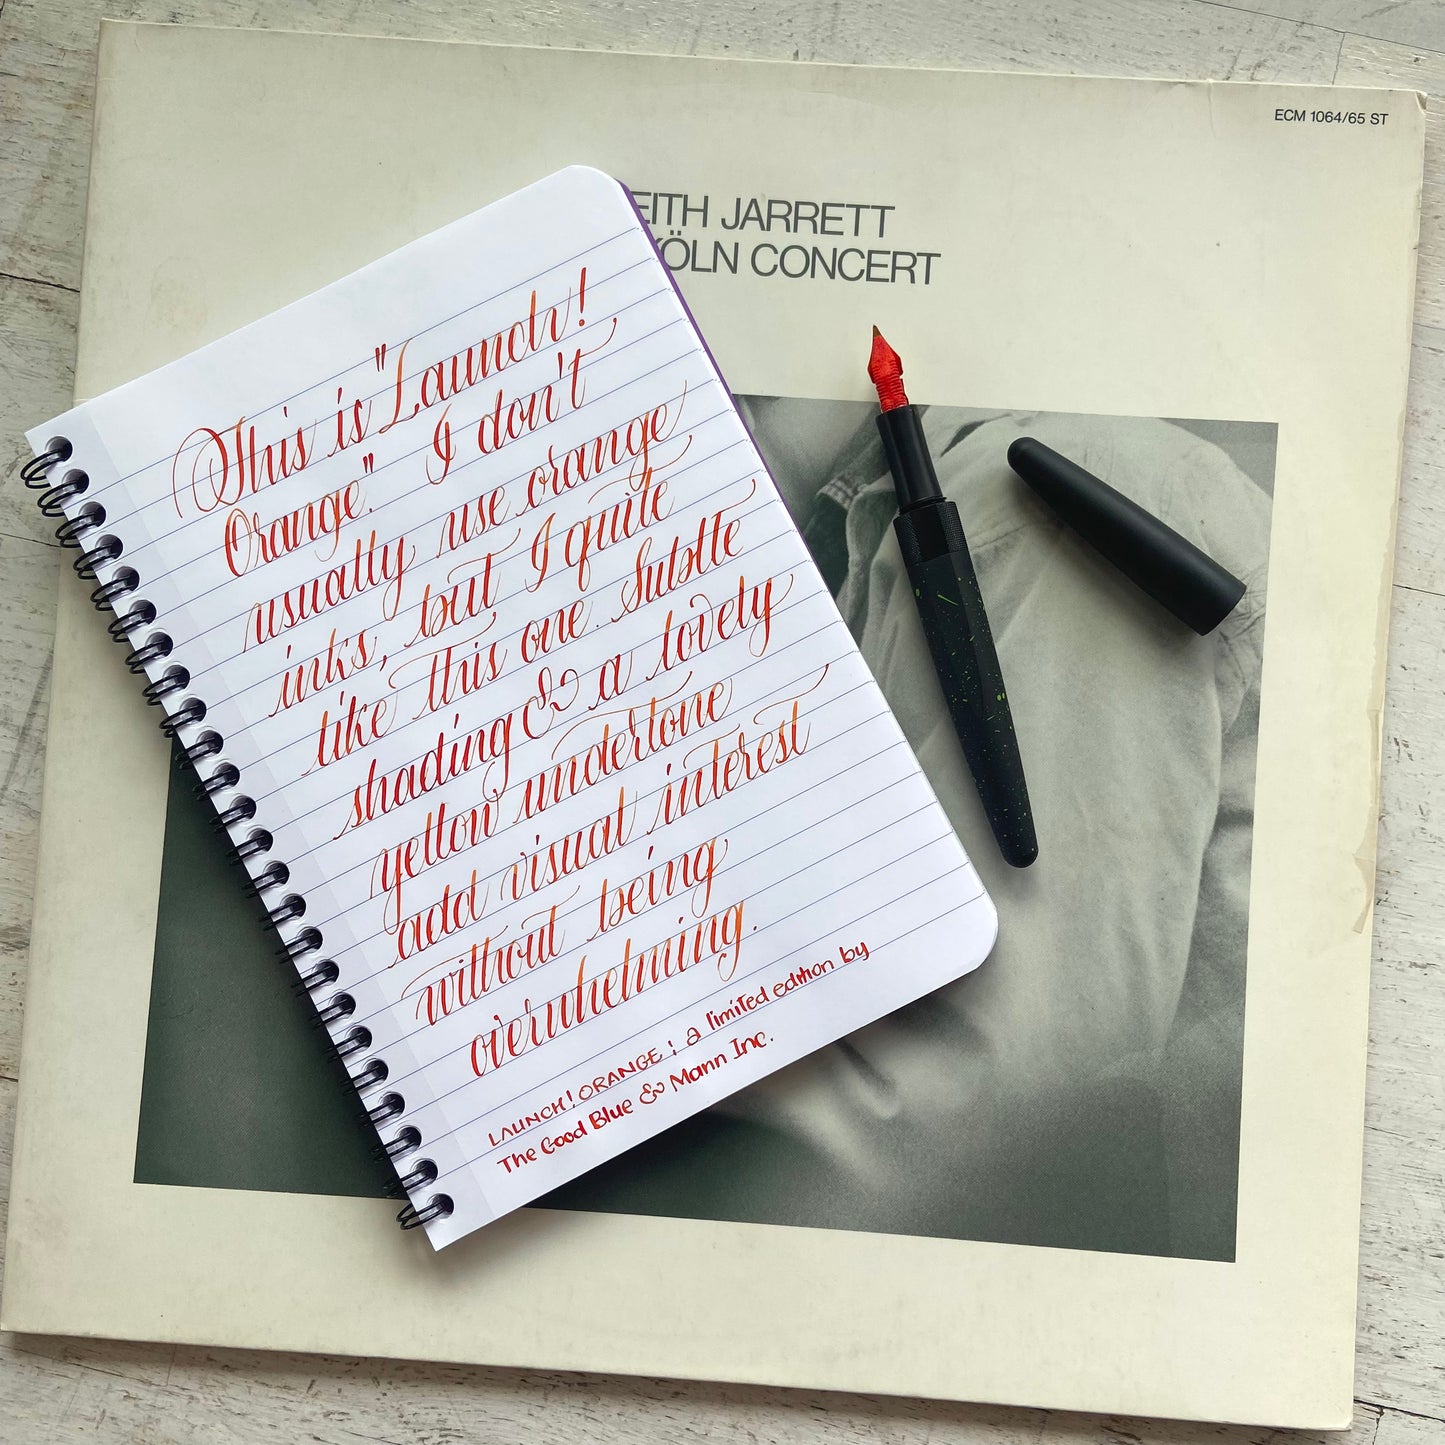 ECM 1064/65 ST
EITH JARRETT
KÖLN CONCERT
This is "Launch!
Orange." I don't
usually use orange
inks, but I quite
like this one. Subtle
shading & a lovely
yellow undertone
add visual interest
without being
overwhelming.
LAUNCH! ORANGE; a limited edition by
The Good Blue & Mann Inc.